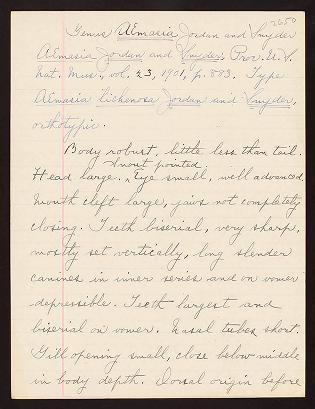 2650
Genus Æmasia Jordan and Snyder
Æmasia Jordan and Snyder, Proc. U. S.
Nat. Mus., vol. 23, 1901, p. 883. Type
Æmasia lichenosa Jordan and Snyder,
orthotypic.
Body robust, little less than tail.
Snout pointed.
Head large. Eye small, well advanced,
mouth cleft large, jaws not completely
closing. Teeth biserial, very sharp,
mostly set vertically, long slender
canines in inner series and on vomer
depressible. Teeth largest and
biserial on vomer. Nasal tubes short.
Gill opening small, close below middle
in body depth. Dorsal origin before